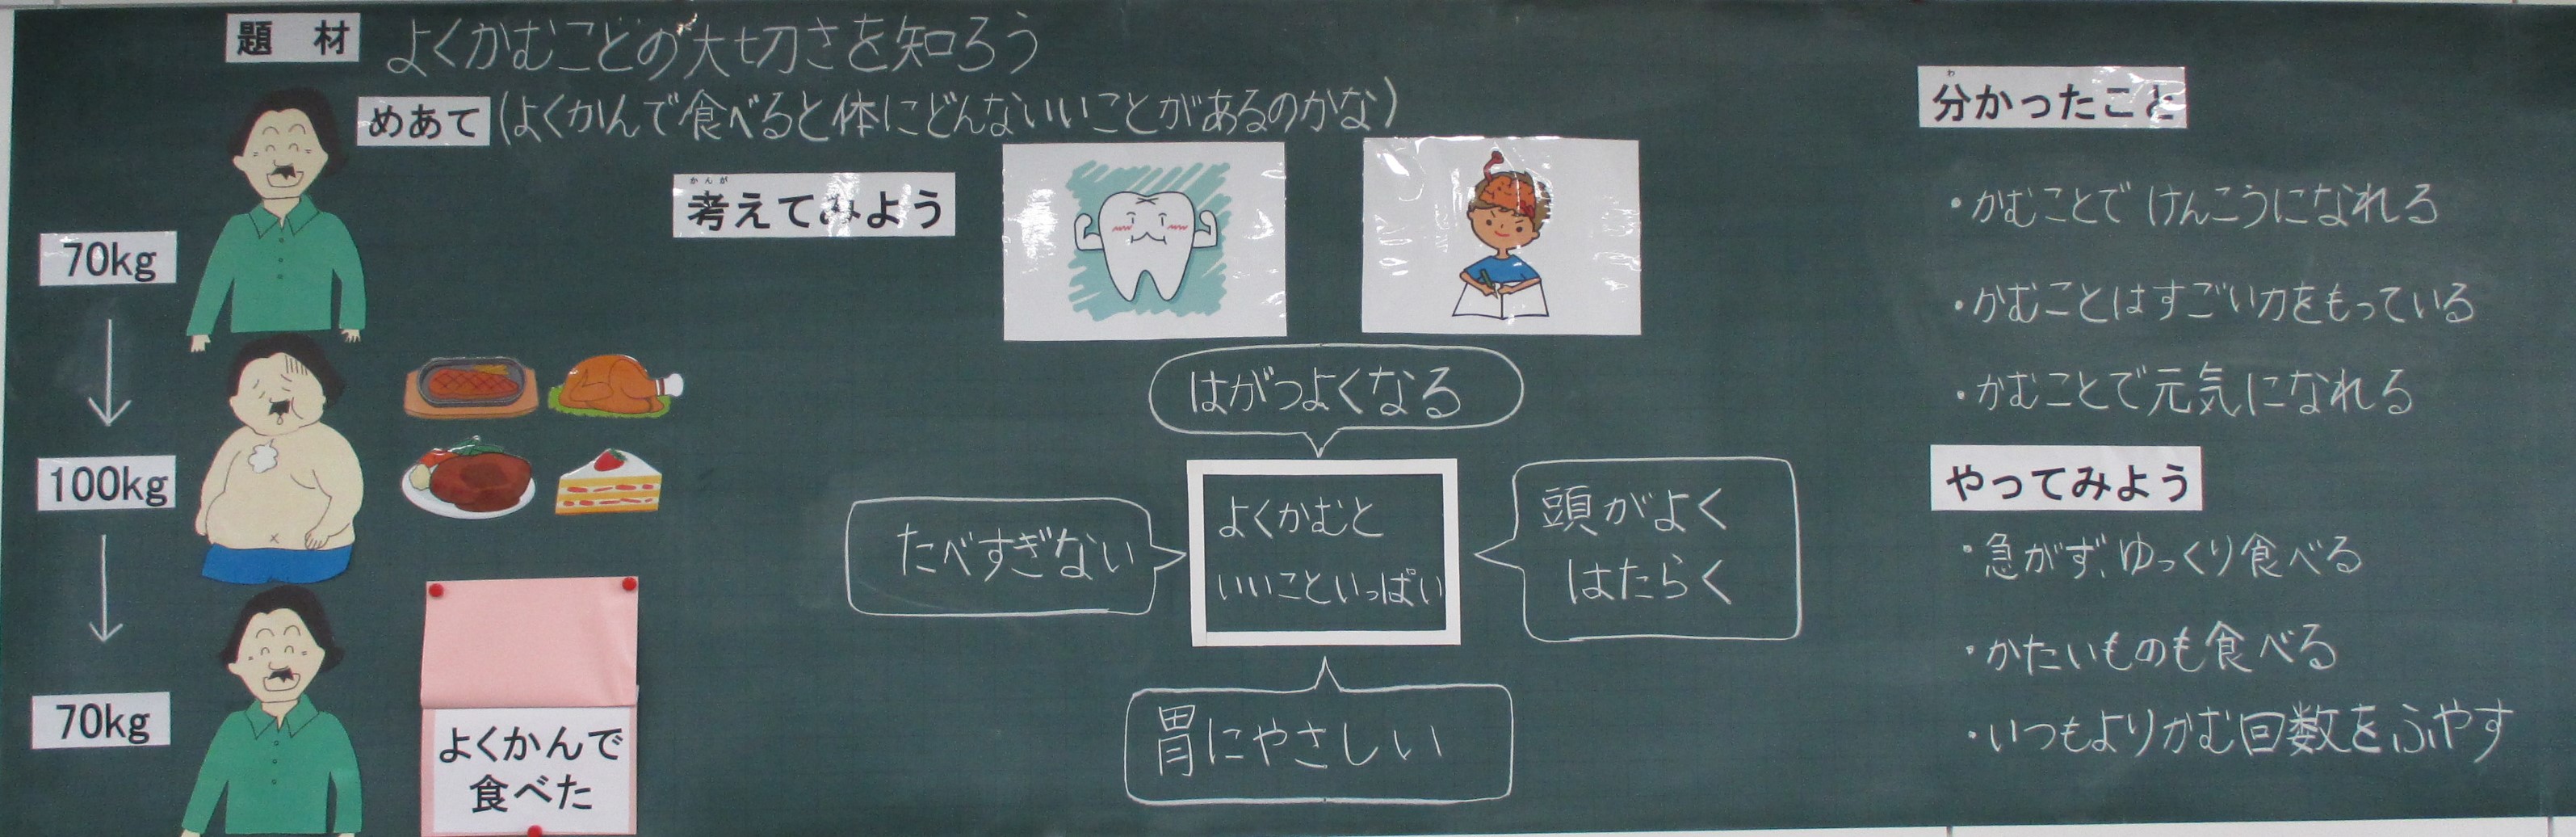 題 材
よくかむことの大切さを知ろう
めあて
(よくかんで食べると体にどんないいことがあるのかな)
70kg
100kg
70kg
よくかんで
食べた
かんが
考えてみよう
はがつよくなる
たべすぎない
よくかむと
いいこといっぱい
頭がよく
はたらく
胃にやさしい
わ
分かったこと
・かむことで けんこうになれる
・かむことはすごい力をもっている
・かむことで元気になれる
やってみよう
・急がず、ゆっくり食べる
・かたいものも食べる
・いつもよりかむ回数をふやす